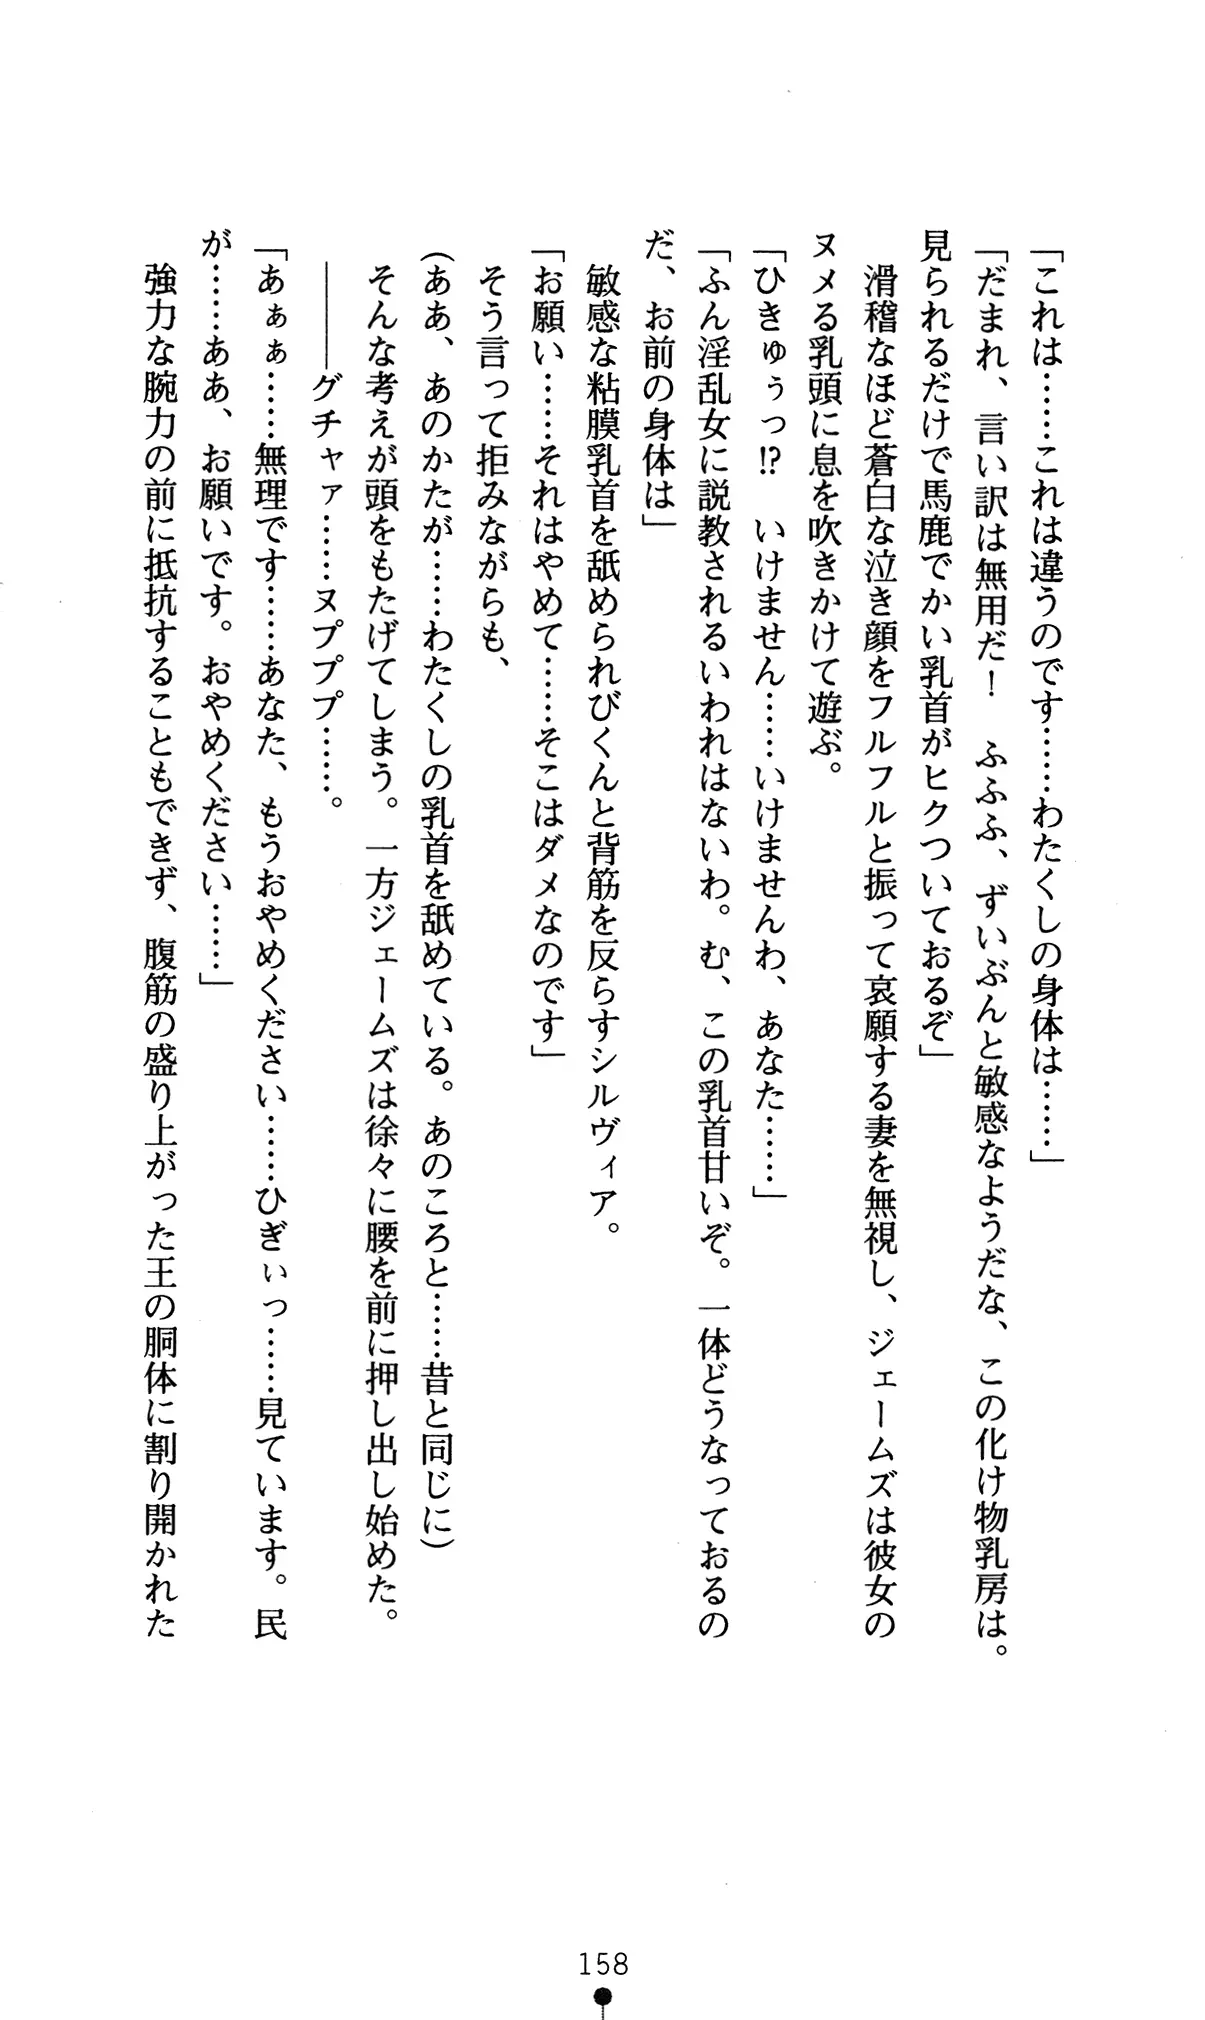 「これは……これは違うのです……わたくしの身体は……」
「だまれ、言い訳は無用だ！　ふふふ、ずいぶんと敏感なようだな、この化け物乳房は。
見られるだけで馬鹿でかい乳首がヒクついておるぞ」
　滑稽なほど蒼白な泣き顔をフルフルと振って哀願する妻を無視し、ジェームズは彼女の
ヌメる乳頭に息を吹きかけて遊ぶ。
「ひきゅぅっ⁉　いけません……いけませんわ、あなた……」
「ふん淫乱女に説教されるいわれはないわ。む、この乳首甘いぞ。一体どうなっておるの
だ、お前の身体は」
　敏感な粘膜乳首を舐められびくんと背筋を反らすシルヴィア。
「お願い……それはやめて……そこはダメなのです」
　そう言って拒みながらも、
（ああ、あのかたが……わたくしの乳首を舐めている。あのころと……昔と同じに）
　そんな考えが頭をもたげてしまう。一方ジェームズは徐々に腰を前に押し出し始めた。
　――グチャァ……ヌププププ……。
「あぁぁ……無理です……あなた、もうおやめください……ひぎぃっ……見ています。民
が……ああ、お願いです。おやめください……」
　強力な腕力の前に抵抗することもできず、腹筋の盛り上がった王の胴体に割り開かれた
158